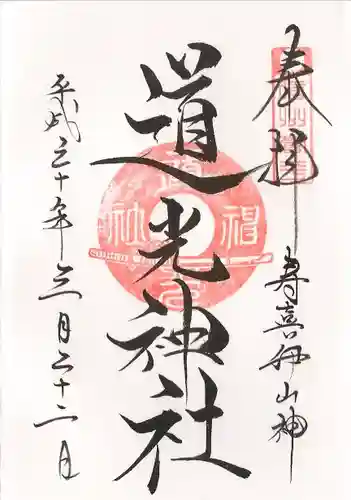 奉拝
寿喜伊山神
道光神社
平成三十年三月二十二日